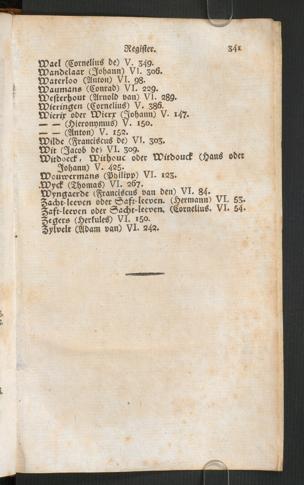 Register. 341
Wael (Cornelius de) V. 349.
Wandelaar (Johann) VI. 306.
Waterloo (Anton) VI. 98.
Waumans (Conrad) VI. 229.
Westerhout (Arnold van) VI. 289.
Wieringen (Cornelius) V. 386.
Wierix oder Wierx (Johann) V. 147.
— — (Hieronymus) V. 150.
— — (Anton) V. 152.
Wilde (Franciscus de) VI. 303.
Wit (Jacob de) VI. 309.
Witdoeck, Withouc oder Witdouck (Hans oder
Johann) V. 425.
Wouwermans (Philipp) VI. 123.
Wyck (Thomas) VI. 267.
Wyngaerde (Franciscus van den) VI. 84.
Zacht-leeven oder Saft-leeven. (Hermann) VI. 53.
Zaft-leeven oder Sacht-leeven, (Cornelius. VI. 54.
Zegers (Herkules) VI. 150.
Zylvelt (Adam van) VI. 242.